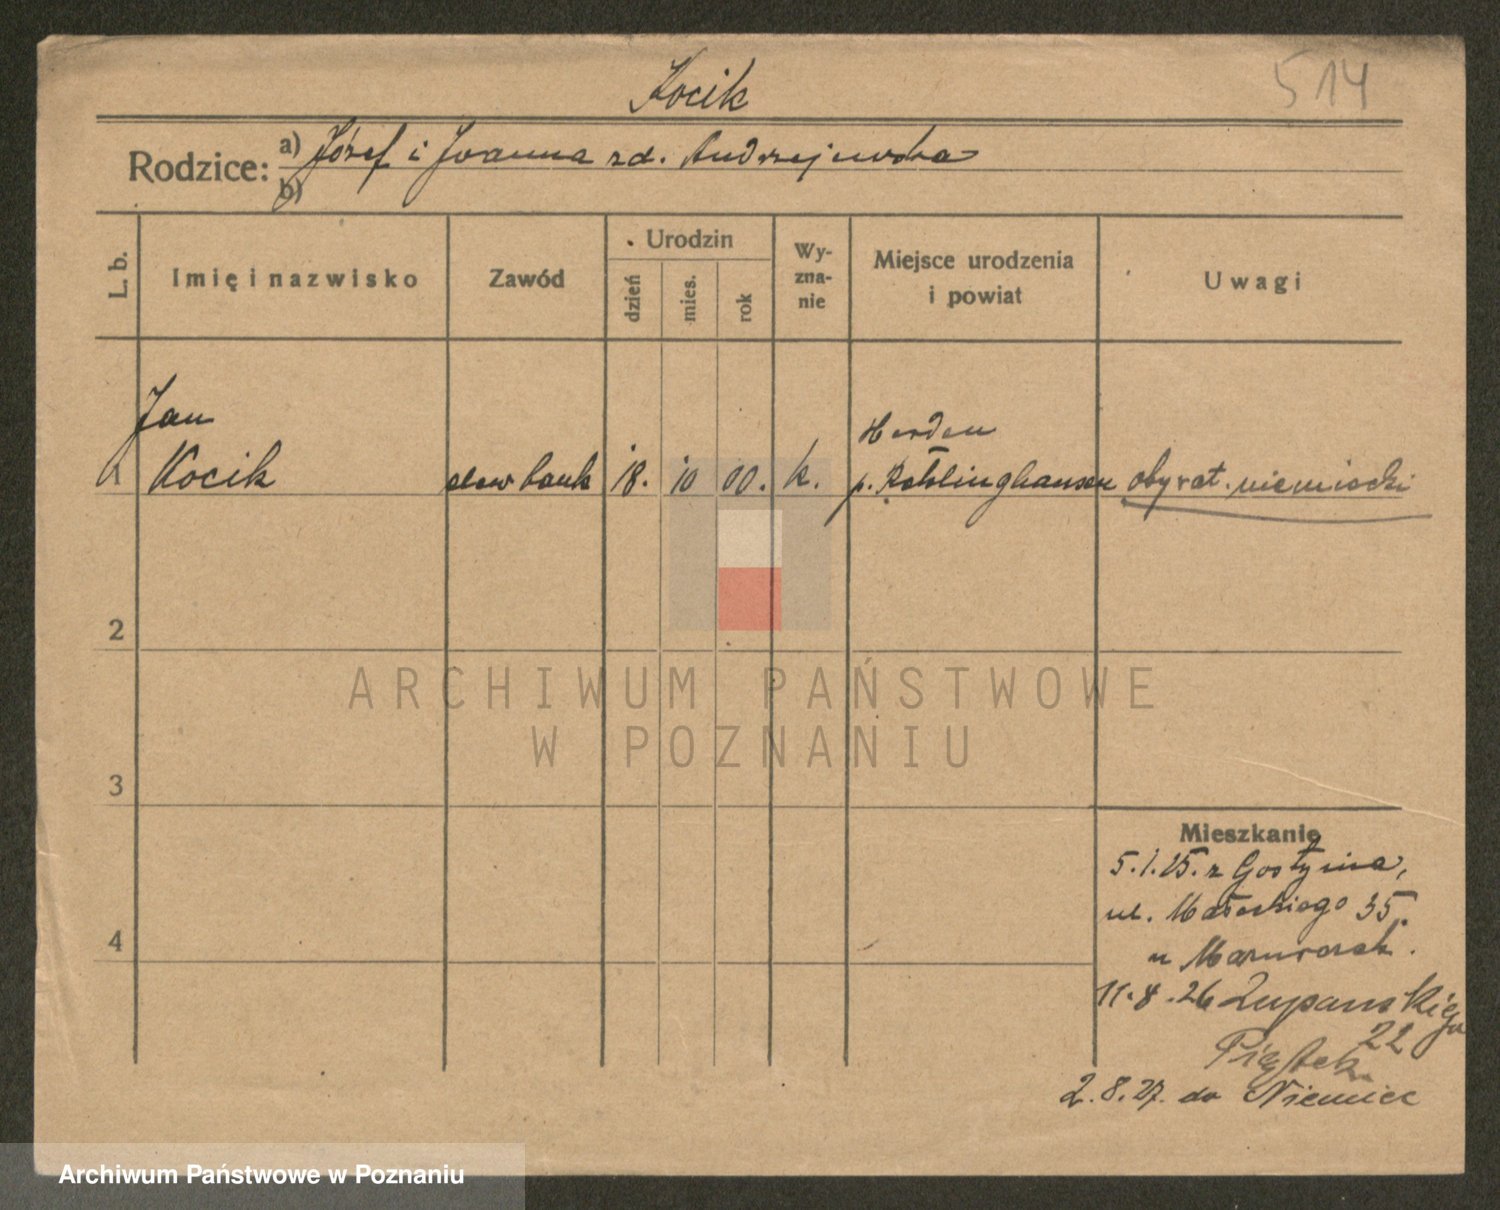 514
Kocik
Rodzice: a) Józef i Joanna zd. Andrzejewska
b)
L. b.
Imię i nazwisko
Zawód
Urodzin
dzień
mies.
rok
Wy-
zna-
nie
Miejsce urodzenia
i powiat
Uwagi
Jan
Kocik
1
elew bank
18.
10
00.
k.
Herden
p. Röhlinghausen
obywat. niemiecki
2
3
4
Mieszkanie
5.1.25. z Gostynia,
ul. Małeckiego 35.
u
11.8.26 Żupańskiego
22
Piątek
2.8.27. do Niemiec
ARCHIWUM PAŃSTWOWE
W POZNANIU
Archiwum Państwowe w Poznaniu